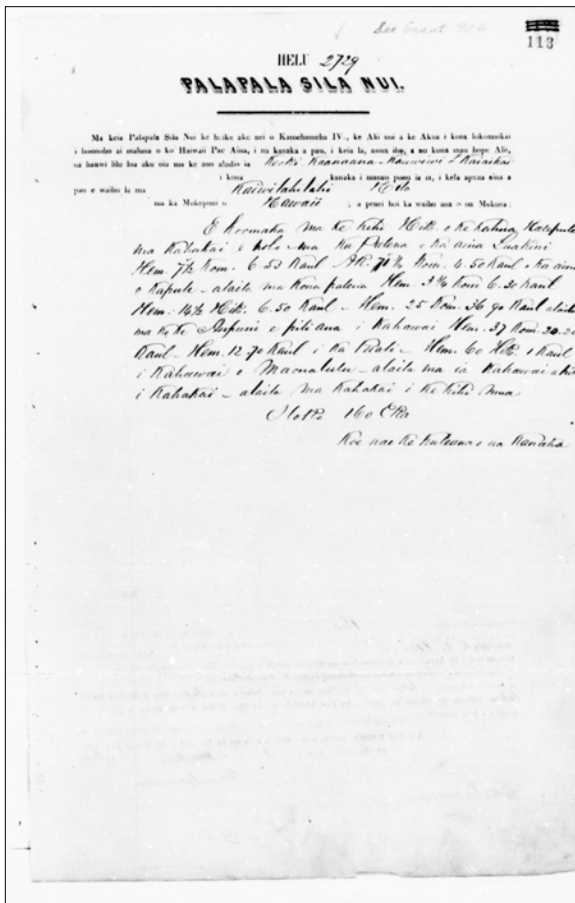 See Grant 906
113
HELU 2729
PALAPALA SILA NUI.
Ma keia Palapala Sila Nui ke hoike aku nei o Kamehameha IV., ke Alii nui a ke Akua i kona lokomaikai
i hoonoho ai maluna o ko Hawaii Pae Aina, i na kanaka a pau, i keia la, nona iho, a no kona mau hope Alii,
ua haawi lilo loa aku oia ma ke ano alodio ia Keoki Kaanaana Kauwiwi & Kaiaikai
i kona kanaka i manao pono ia ia, i kela apana aina a
pau e waiho la ma Kaiwilahilahi Hilo
ma ka Mokupuni o Hawaii ; a penei hoi ka waiho ana o na Mokuna:
E hoomaka ma ke kihi Hik. o ke kahua Halepule
ma kahakai e holo ma ka Palena o ka aina Luakini
Hem. 7½ Kom. 6.53 Kaul Ak. Kom. 4.50 Kaul o ka aina
o Kapule - alaila ma kona palena Hem. Kom 6.30 Kaul
Hem. 14½ Hik. 6.50 Kaul - Hem. 25 Kom. 36.90 Kaul alaila
ma ke Aupuni e pili ana i kahawai Hem. 37 Kom.
Kaul - Hem. 12.70 Kaul i ka Pali - Hem. 60 Hik. 1 Kaul
i Kahawai o Maonalulu - alaila ma ia Kahawai a hiki
i Kahakai - alaila ma Kahakai i ke kihi mua
160 Eka
Koe nae ke kuleana o na Kanaka